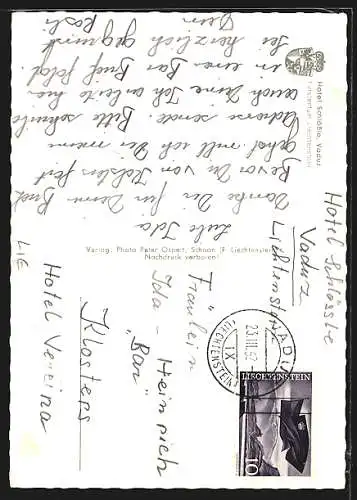 Hotel Schlössle, Vaduz
Fürstentum Liechtenstein
Liebe Ida
Danke Dir für Deinen Brief
Bevor Du von Klosters fort
gehst will ich Dir meine
Adresse sende. Bitte schreibe
auch Deine. Ich arbeite hier
in einer Bar Brief folgt
Sei herzlich gegrüsst
Dein
Verlag: Photo Peter Ospelt, Schaan (F. Liechtenstein)
Nachdruck verboten!
Hotel Schlössle
Vaduz
Liechtenstein
VADUZ
23.III.62
IX
(LIECHTENSTEIN)
LIECHTENSTEIN
10
Fräulein
Ida Heinrich
"Bar"
Hotel Vereina
Klosters
LIE